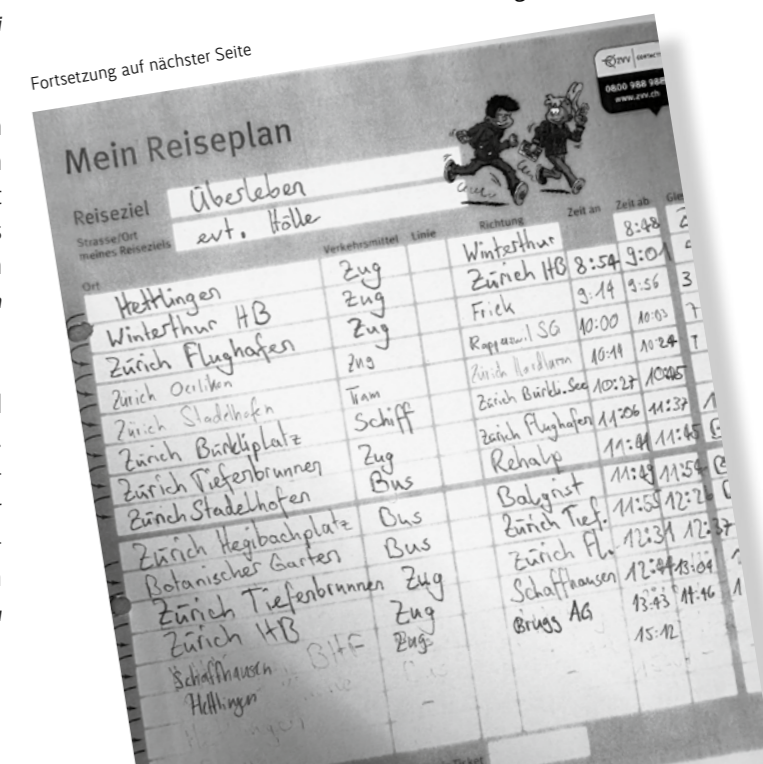 Fortsetzung auf nächster Seite
ZVV CONTACT
0800 988 988
www.zvv.ch
Mein Reiseplan
Reiseziel Überleben
Strasse/Ort meines Reiseziels evt. Hölle
Ort Verkehrsmittel Linie Richtung Zeit an Zeit ab
Hettlingen Zug Winterthur 8:48
Winterthur HB Zug Zürich HB 8:54 9:01
Zürich Flughafen Zug Frick 9:14 9:56 3
Zürich Oerlikon Zug Rapperswil SG 10:00 10:03 7
Zürich Stadelhofen Tram Zürich 10:14 10:24
Zürich Bürkliplatz Schiff Zürich Bürkli. See 10:27
Zürich Tiefenbrunnen Zug Zürich Flughafen 11:06 11:37
Zürich Stadelhofen Bus Rehalp 11:41 11:45
Zürich Hegibachplatz Bus Balgrist 11:49 11:54
Botanischer Garten Bus Zürich Tief. 11:55
Zürich Tiefenbrunnen Zug Zürich Fl. 12:31 12:37
Zürich HB Zug Schaffhausen 12:44 13:04
Schaffhausen Zug Brugg AG 13:43 14:46
Hettlingen 15:12